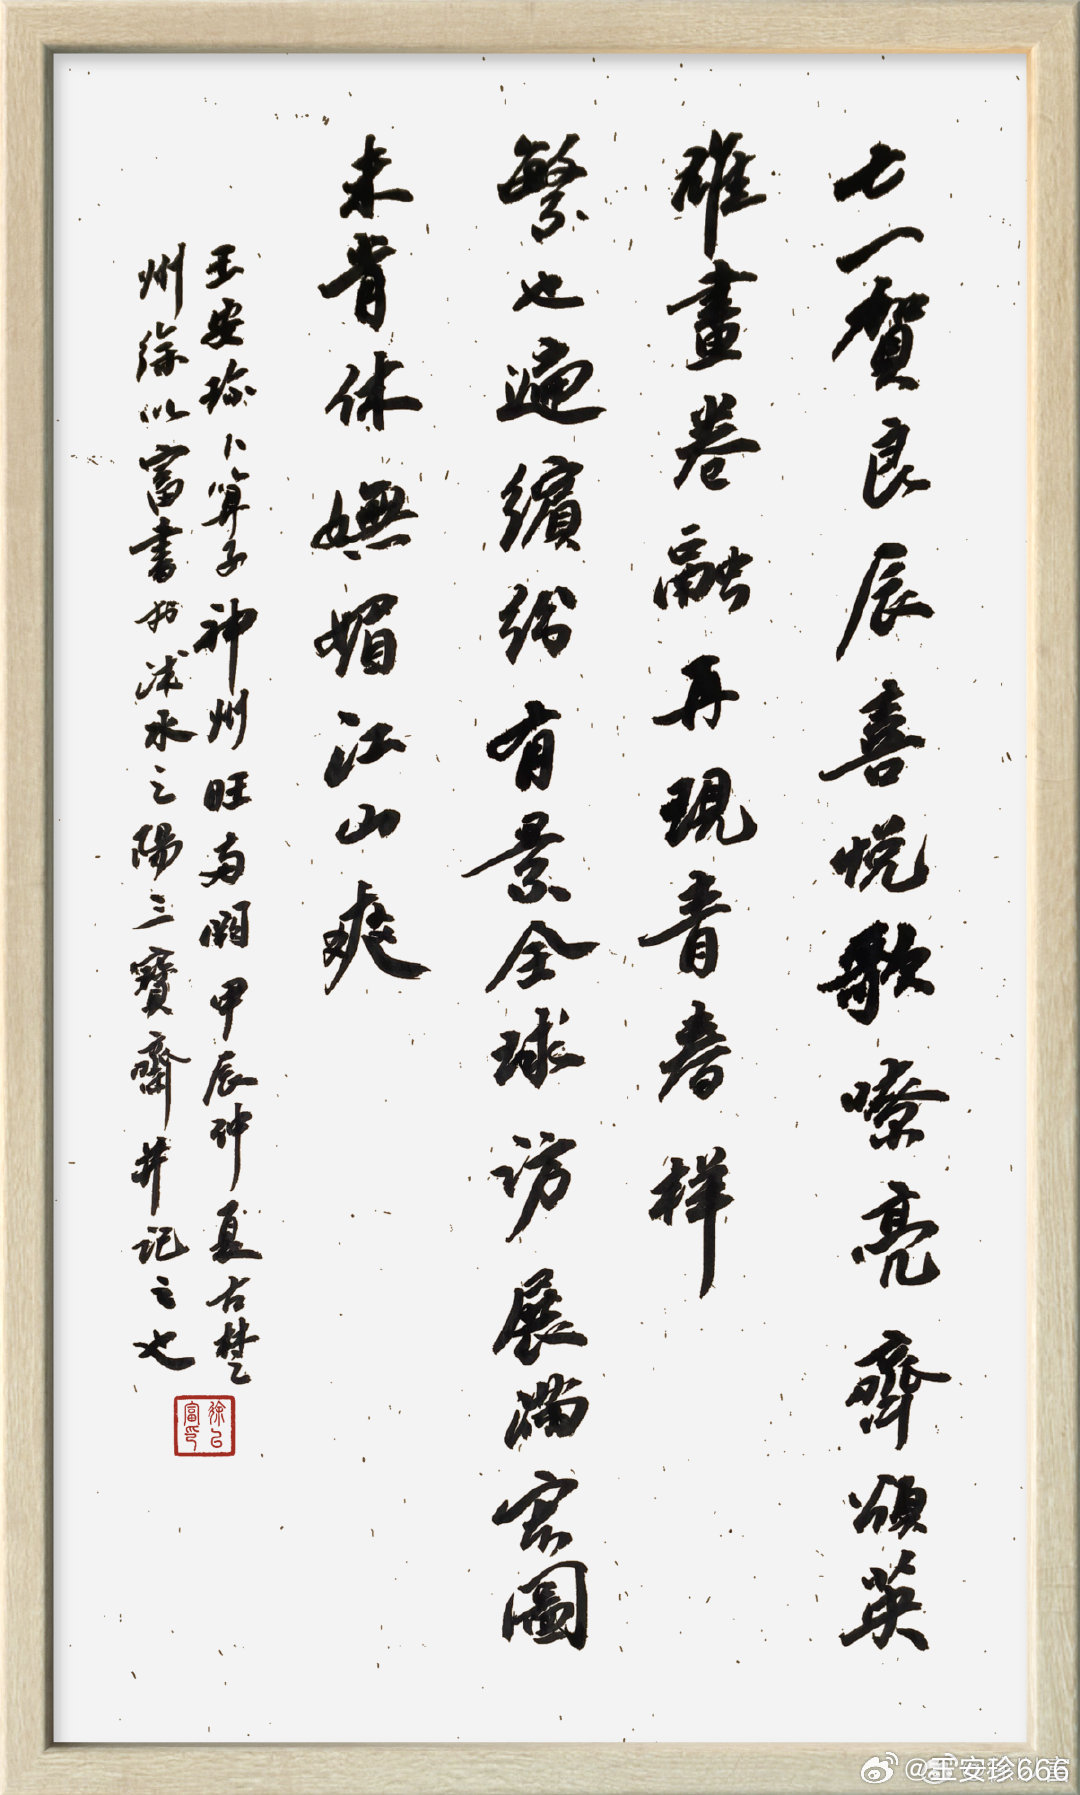 七一賀良辰喜悦歌嘹亮齊頌英
雄畫卷融再現青春样
繁也遍繽紛有景全球访展满宏圖
未肯休嫵媚江山爽
王安珍卜算子神州旺两闋甲辰仲夏古楚
州徐以富書於沭水之陽三寶齋并记之也
徐以富印
@王安珍666